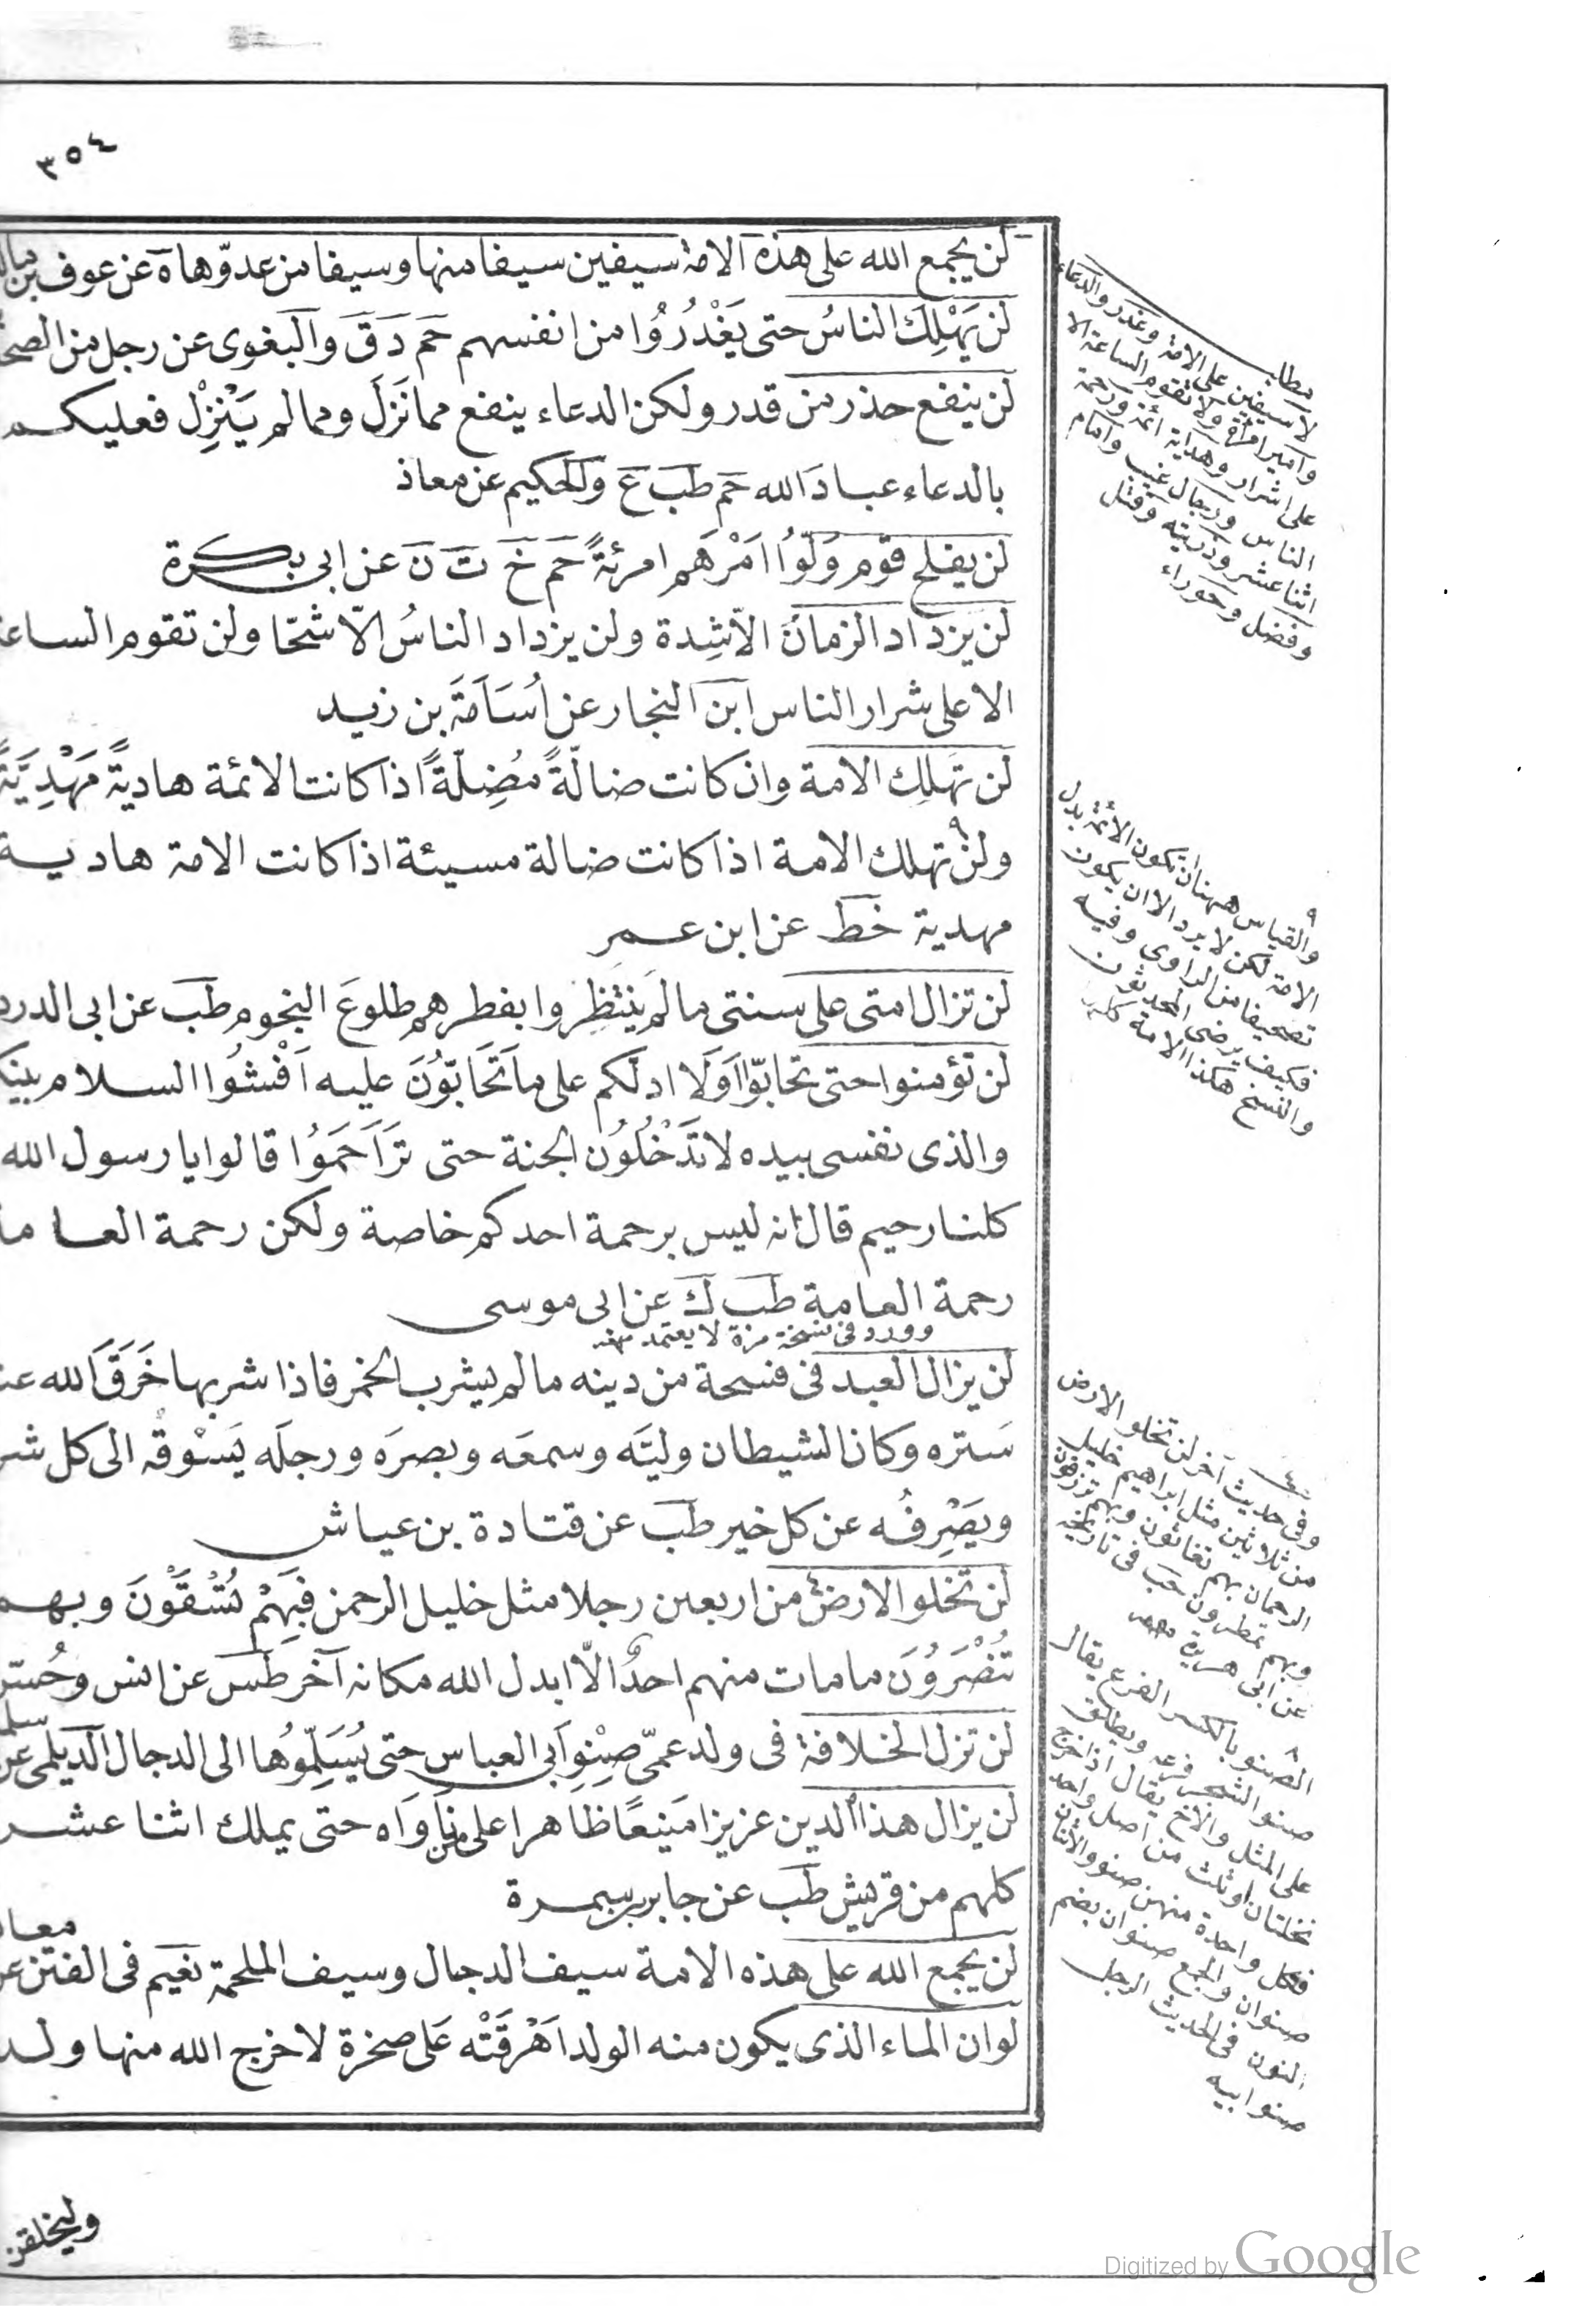 ٣٥٤
لن يجمع الله على هذه الامة سيفين سيفا منها وسيفا من عدوّها ه عن عوف بن مالك
لن يَهْلِكَ الناسُ حتى يَغْدُرُوُا من انفسهم حَم دَ قَ والبغوى عن رجل من الصح
لن ينفع حذر من قدر ولكن الدعاء ينفع مما نَزَلَ ومما لم يَنْزِلْ فعليكم
بالدعاء عبادَ الله حَم طَب عَ والحكيم عن معاذ
لن يفلح قوم وَلّوُا امْرَهم امرئةً حَم خَ تَ نَ عن ابى بكرة
لن يزداد الزمان الّا شِدة ولن يزداد الناسُ الّا شحّا ولن تقوم الساعة
الا على شرار الناس ابن النجار عن اُسَامَةَ بن زيد
لن تَهلِك الامة وان كانت ضالّةً مُضِلّةً اذا كانت الائمة هاديةً مَهْدِيَّةً
ولن٩ تهلك الامة اذا كانت ضالة مسيئة اذا كانت الامة هادية
مهدية خَط عن ابن عمر
لن تزال امتى على سنتى ما لم يَنْتَظِروا بفطرهم طلوعَ النجوم طَب عن ابى الدرد
لن تؤمنوا حتى تحابّوا اَوَلَا ادلّكم على ما تَحَابّوُنَ عليه اَفْشُوا السلام بينكم
والذى نفسى بيده لا تَدْخُلُون الجنة حتى تَرَاحَمَوُا قالوا يا رسول الله
كلنا رحيم قال انه ليس برحمة احدكم خاصة ولكن رحمة العامة
رحمة العامة طَب كَ عن ابى موسى
وورد فى نسخة مزة لا يعتمد
لن يزال العبد فى فسحة من دينه ما لم يشرب الخمر فاذا شربها خَرَقَ الله عنه
سَتره وكان الشيطان وليَّه وسمعَه وبصرَه ورجلَه يَسْوُقُه الى كل شر
ويَصْرِفُه عن كل خير طَب عن قتادة بن عياش
لن تخلو الارض٤ من اربعين رجلا مثل خليل الرحمن فَبِهِمْ تُسْقَوْنَ وبهم
تُنْصَرَوُنَ ما مات منهم احدٌ الّا ابدل الله مكانه آخر طَس عن انس وحُسّن
لن تزل الخلافة فى ولد عمّى صِنْوِ اَبى العباس حتى يُسَلِّمُوُها الى الدجال الديلمى عن ام سلمة
لن يزال هذا الدين عزيزا مَنيعًا ظاهرا على من نَاوَاه حتى يملك اثنا عشر
كلهم من قريش طَب عن جابر بن سمرة
لن يجمع الله على هذه الامة سيف الدجال وسيف الملحمة نعَيم فى الفتن عن معاذ
لو ان الماء الذى يكون منه الولد اَهْرَقَتْه عَلى صخرة لاخرج الله منها ولدا
وليخلقن
مطلب
لا سيفين على الامة وغدر والدعاء
وامير امرأة ولا تقوم الساعة الا
على اشرار وهداية ائمة ورحمة
الناس ورجال غيب وامام
اثنا عشر وذريته وقتل
وفضل وحوراء
٩
والقياس ههنا ان تكون الائمة بدل
الامة لكن لا يرد الا ان يكون
تصحيفا من الراوى وفيه
فكيف يرضى المحدثون
والنسخ هكذا الامة
٤
وفى حديث آخر لن تخلو الارض
من ثلاثين مثل ابراهيم خليل
الرحمان بهم تغاثون وبهم ترزقون
وبهم تمطرون حب فى تاريخه
عن ابى هريرة
٨
الصنو بالكسر الفرع يقال
صنو الشجر فرعه ويطلق
على المثل والاخ يقال اذا خرج
نخلتان او ثلث من اصل واحد
فكل واحدة منهن صنو والاثنان
صنوان والجمع صنوان بضم
النون فى الحديث الرجل
صنو ابيه
Digitized by Google